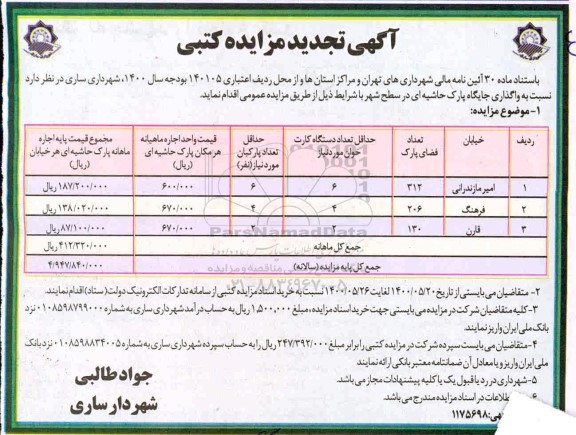 آگهی تجدید مزایده کتبی
باستناد ماده ۳۰ آئین نامه مالی شهرداری های تهران و مراکز استان ها و از محل ردیف اعتباری ۱۴۰۱۰۵ بودجه سال ۱۴۰۰، شهرداری ساری در نظر دارد
نسبت به واگذاری جایگاه پارک حاشیه ای در سطح شهر با شرایط ذیل از طریق مزایده عمومی اقدام نماید.
۱- موضوع مزایده:
ردیف خیابان تعداد فضای پارک حداقل تعداد دستگاه کارت خوان مورد نیاز حداقل تعداد پارکبان مورد نیاز (نفر) قیمت واحد اجاره ماهیانه هر مکان پارک حاشیه ای (ریال) مجموع قیمت پایه اجاره ماهانه پارک حاشیه ای هر خیابان (ریال)
۱ امیر مازندرانی ۳۱۲ ۶ ۶ ۶۰۰/۰۰۰ ۱۸۷/۲۰۰/۰۰۰ ریال
۲ فرهنگ ۲۰۶ ۴ ۴ ۶۷۰/۰۰۰ ۱۳۸/۰۲۰/۰۰۰ ریال
۳ قارن ۱۳۰ ۶۷۰/۰۰۰ ۸۷/۱۰۰/۰۰۰ ریال
جمع کل ماهانه ۴۱۲/۳۲۰/۰۰۰ ریال
جمع کل پایه مزایده (سالانه) ۴/۹۴۷/۸۴۰/۰۰۰
ParsNamadData
۰۲۱-۸۸۳۴۹۶۷۰-۵
۲- متقاضیان می بایستی از تاریخ ۱۴۰۰/۰۵/۲۰ لغایت ۱۴۰۰/۰۵/۲۶ نسبت به خرید اسناد مزایده کتبی از سامانه تدارکات الکترونیک دولت (ستاد) اقدام نمایند.
۳- کلیه متقاضیان شرکت در مزایده می بایستی جهت خرید اسناد مزایده، مبلغ ۱,۵۰۰,۰۰۰ ریال به حساب درآمد شهرداری ساری به شماره ۰۱۰۸۵۹۸۷۹۹۰۰۰ نزد
بانک ملی ایران واریز نمایند.
۴- متقاضیان می بایست سپرده شرکت در مزایده کتبی را برابر مبلغ ۲۴۷/۳۹۲/۰۰۰ ریال را به حساب سپرده شهرداری ساری به شماره ۰۱۰۸۵۹۸۸۳۴۰۰۵ نزد بانک
ملی ایران واریز و یا معادل آن ضمانتنامه معتبر بانکی ارائه نمایند
۵- شهرداری در رد یا قبول یک یا کلیه پیشنهادات مجاز می باشد.
اطلاعات در اسناد مزایده مندرج می باشد.
۱۱۷۵۶۹۸
جواد طالبی
شهردار ساری